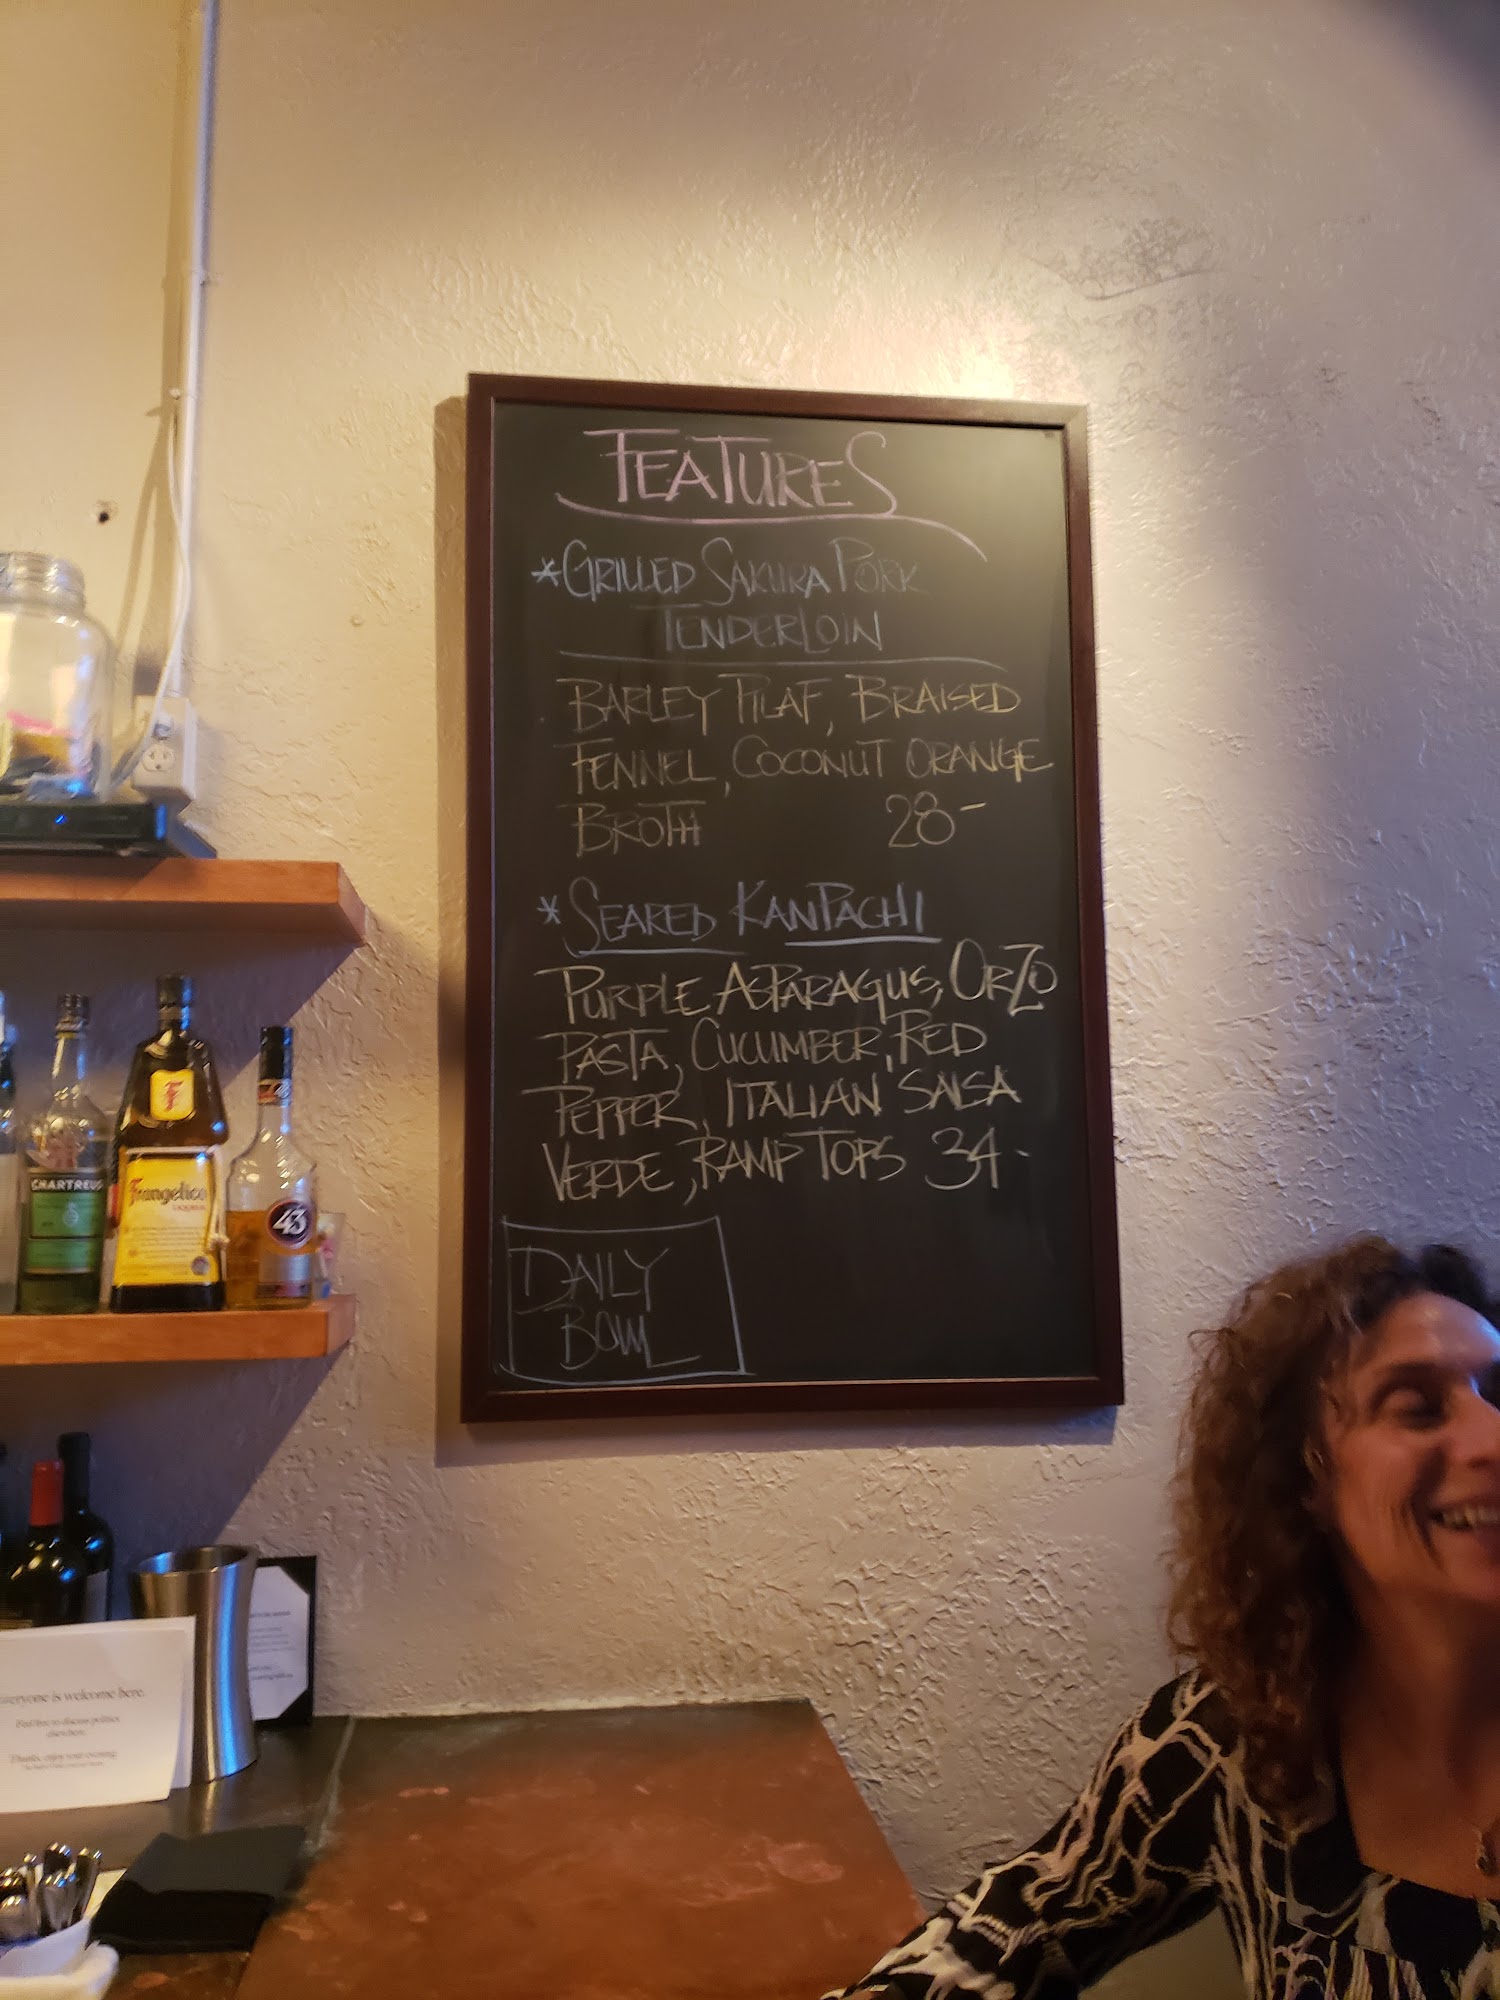 FEATURES
*GRILLED SAKURA PORK
TENDERLOIN
BARLEY PILAF, BRAISED
FENNEL, COCONUT ORANGE
BROTH 28-
*SEARED KANPACHI
PURPLE ASPARAGUS, ORZO
PASTA, CUCUMBER, RED
PEPPER, ITALIAN SALSA
VERDE, RAMP TOPS 34-
DAILY
BOWL
CHARTREUSE
Frangelico
LIQUEUR
43
everyone is welcome here.
Feel free to discuss politics
elsewhere.
Thanks, enjoy your evening.